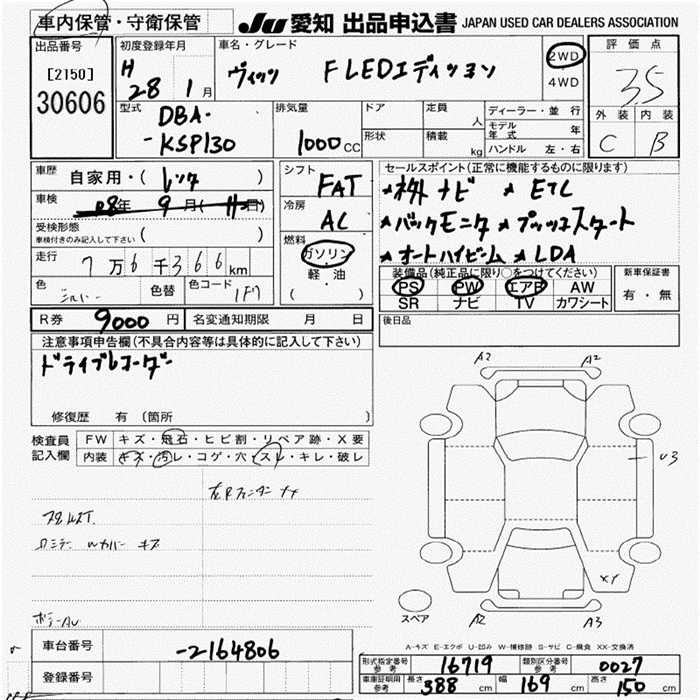 車内保管・守衛保管
JU 愛知 出品申込書 JAPAN USED CAR DEALERS ASSOCIATION
出品番号
[2150]
30606
初度登録年月
H 28年 1月
車名・グレード
ヴィッツ F LEDエディション
2WD
4WD
評価点
3.5
外装 内装
C B
型式
DBA-
-KSP130
排気量
1000 CC
ドア
定員 人
形状
積載 kg
ディーラー・並行
モデル年式 年
ハンドル 左・右
車歴 自家用・(レンタ)
車検 年 9月(日)
受検形態
車検付きのみ記入して下さい ( )
走行 7万6千366km
色 シルバー
色替
色コード 1F7
シフト
FAT
冷房
AC
燃料
ガソリン
軽・油
( ・ )
セールスポイント(正常に機能するものに限ります)
★社外ナビ ★ETC
★バックモニタ ★プッシュスタート
★オートハイビーム ★LDA
装備品(純正品に限り○をつけてください)
PS PW エアB AW
SR ナビ TV カワシート
新車保証書
有・無
R券 9000円
名変通知期限 月 日
後日品
注意事項申告欄(不具合内容等は具体的に記入して下さい)
ドライブレコーダー
修復歴 有(箇所 )
検査員記入欄
FW キズ・飛石・ヒビ割・リペア跡・X要
内装 キズ・汚レ・コゲ・穴・スレ・キレ・破レ
キズ
A2 A2
U3
XY
スペア
A2 A3
車台番号 -2164806
登録番号
A-キズ E-エクボ U-凹み W-補修跡 S-サビ C-腐食 XX-交換済
形式指定番号参考 16719
類別区分番号参考 0027
車庫証明用参考 長さ 388 cm 幅 169 cm 高さ 150 cm